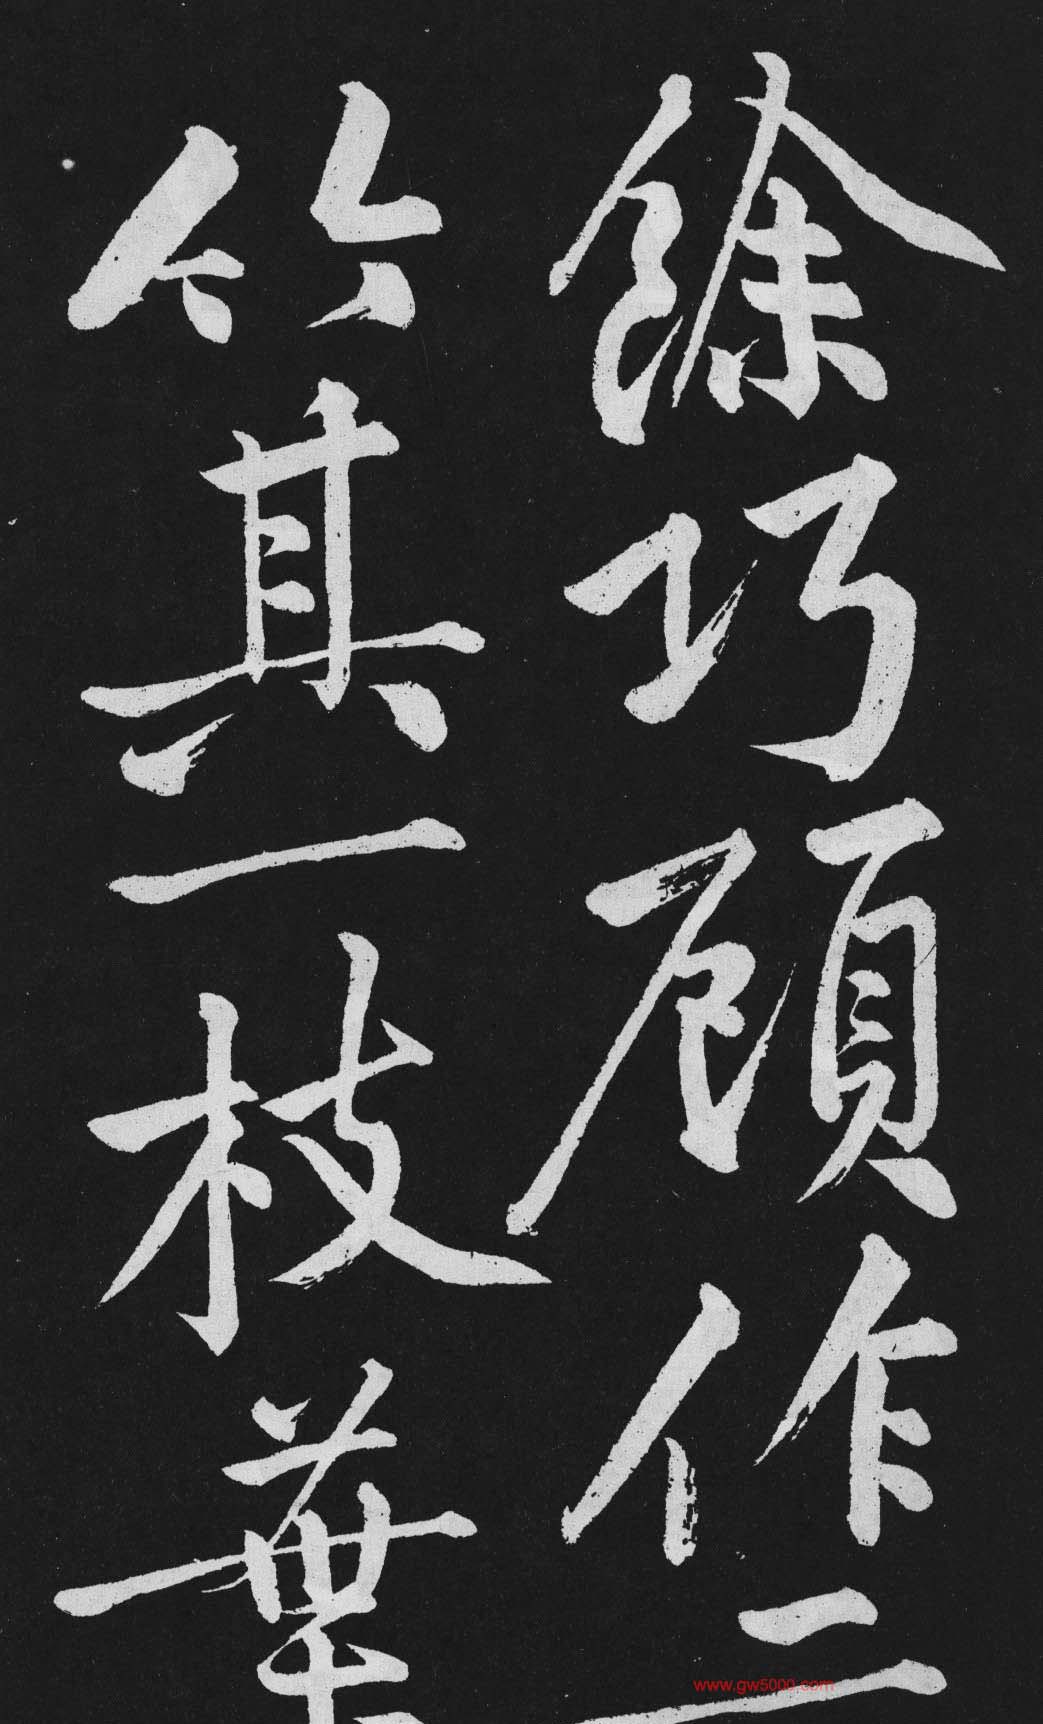 餘巧顧作二
竹其一枝葉
www.gw5000.com